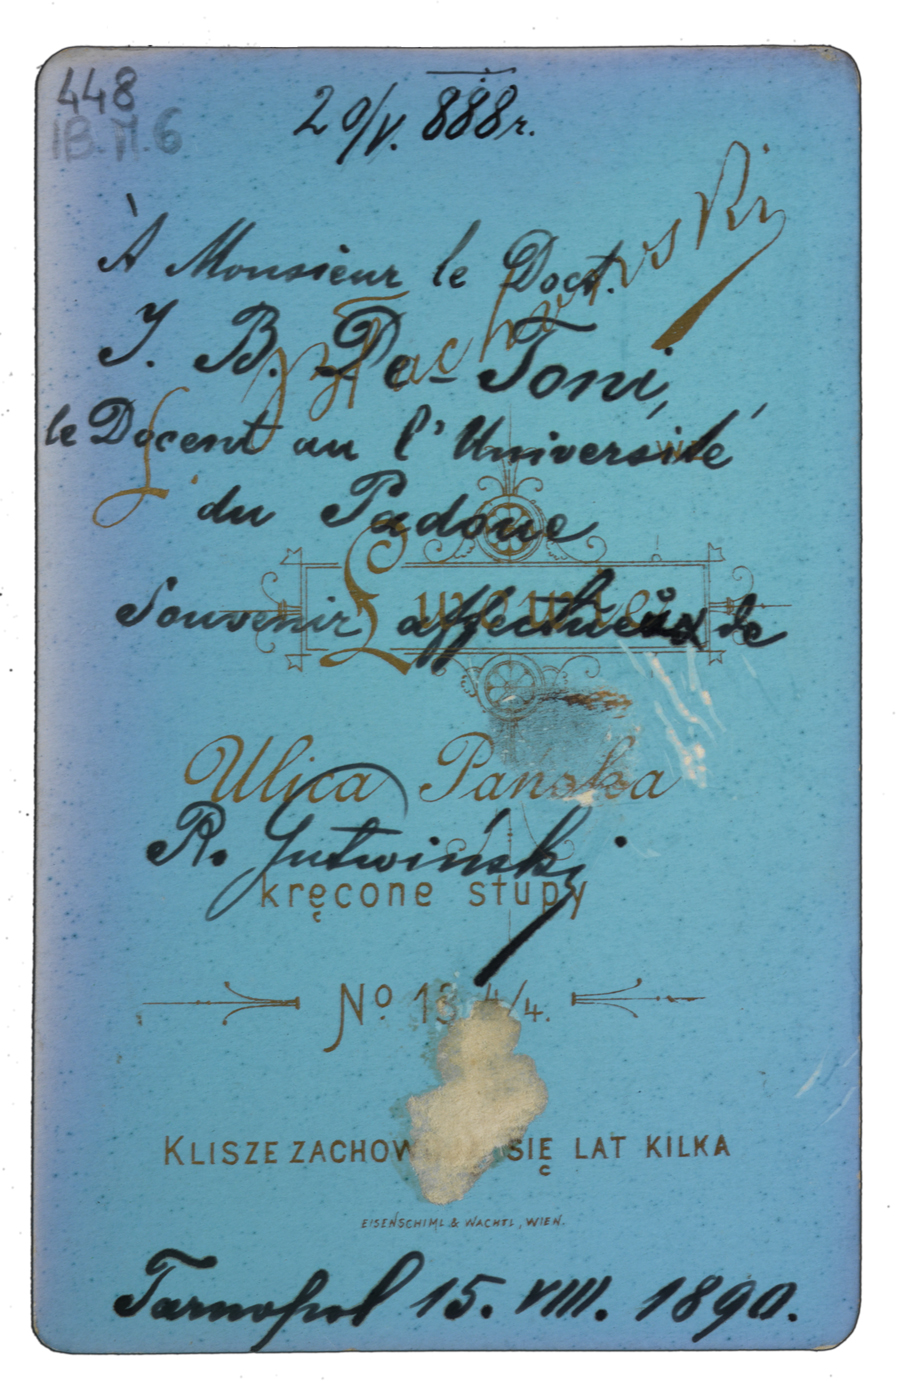 448
IB.M.6
20/V. 888r.
À Monsieur le Doct.
J. B. De-Toni,
le Docent au l'Université
du Padoue
Souvenir affectueux de
Ulica Panska
R. Gutwiński
kręcone słupy
No 13 4/4.
KLISZE ZACHOW SIĘ LAT KILKA
EISENSCHIML & WACHTL, WIEN.
Tarnopol 15. VIII. 1890.